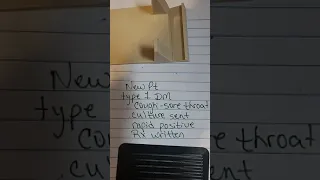 New Pt
type 1 DM
cough - sore throat
culture sent
rapid positive
Rx written